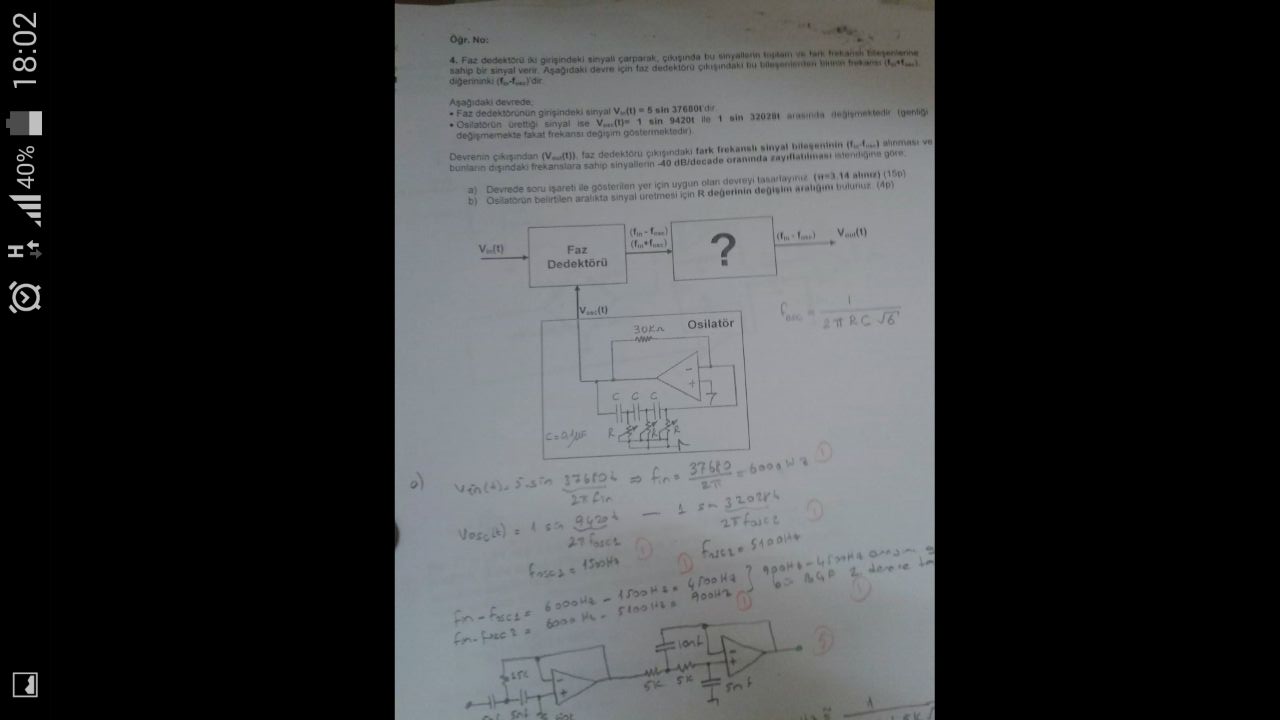 18:02
40%
H
Öğr. No:
4. Faz dedektörü iki girişindeki sinyali çarparak, çıkışında bu sinyallerin toplam ve fark frekanslı bileşenlerine
sahip bir sinyal verir. Aşağıdaki devre için faz dedektörü çıkışındaki bu bileşenlerden birinin frekansı (fin+fosc),
diğerininki (fin-fosc)'dir.
Aşağıdaki devrede;
• Faz dedektörünün girişindeki sinyal Vin(t) = 5 sin 37680t'dir.
• Osilatörün ürettiği sinyal ise Vosc(t)= 1 sin 9420t ile 1 sin 32028t arasında değişmektedir (genliği
değişmemekte fakat frekansı değişim göstermektedir).
Devrenin çıkışından (Vout(t)), faz dedektörü çıkışındaki fark frekanslı sinyal bileşeninin (fin-fosc) alınması ve
bunların dışındaki frekanslara sahip sinyallerin -40 dB/decade oranında zayıflatılması istendiğine göre;
a) Devrede soru işareti ile gösterilen yer için uygun olan devreyi tasarlayınız. (π=3.14 alınız) (15p)
b) Osilatörün belirtilen aralıkta sinyal üretmesi için R değerinin değişim aralığını bulunuz. (4p)
Vin(t)
Faz
Dedektörü
(fin - fosc)
(fin+fosc)
?
(fin - fosc)
Vout(t)
Vosc(t)
fosc = 1 / 2πRC√6
30KΩ
Osilatör
-
+
C C C
R R R
C=0,1µF
a) Vin(t) = 5 sin 37680t ⇒ fin = 37680 / 2π = 6000 Hz 1
2πfin
Vosc(t) = 1 sin 9420t — 1 sin 32028t 1
2πfosc1 2πfosc2
fosc1 = 1500Hz 1 1 fosc2 = 5100Hz
fin - fosc1 = 6000Hz - 1500Hz = 4500Hz } 900Hz - 4500Hz
fin - fosc2 = 6000Hz - 5100Hz = 900Hz 1 BGF 2. derece 1
10nF
-
+
5K 5K
5nF
-
+
5nF